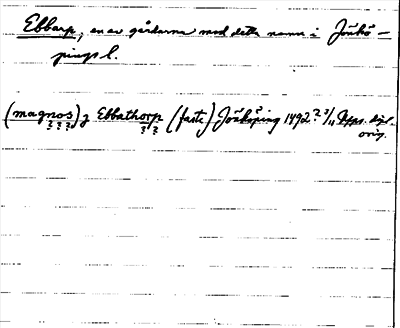 Ebbarp, en av gårdarna med detta namn i Jönkö-
pings l.
(magnos) j Ebbathorp (faste) Jönköping 1492 2/11 Upps. dipl.
orig.